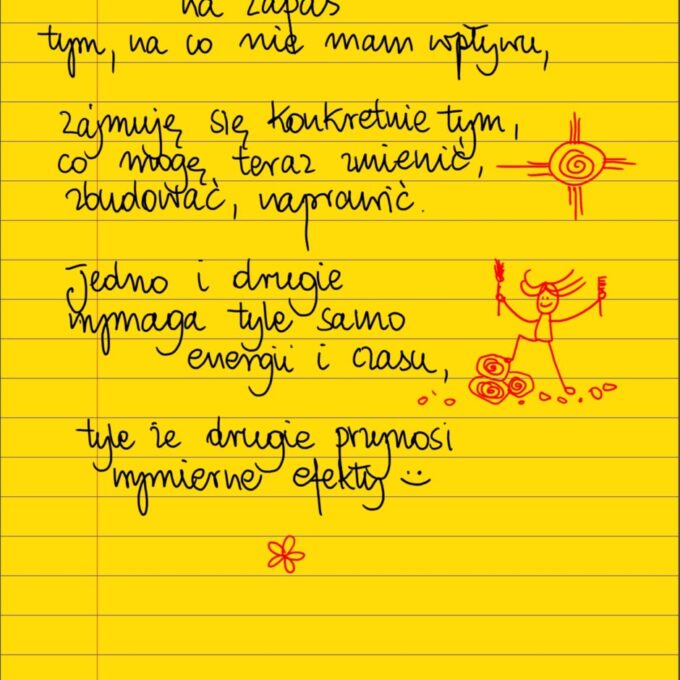 na zapas
tym, na co nie mam wpływu,
zajmuję się konkretnie tym,
co mogę, teraz zmienić,
zbudować, naprawić.
Jedno i drugie
wymaga tyle samo
energii i czasu,
tyle że drugie przynosi
wymierne efekty :)